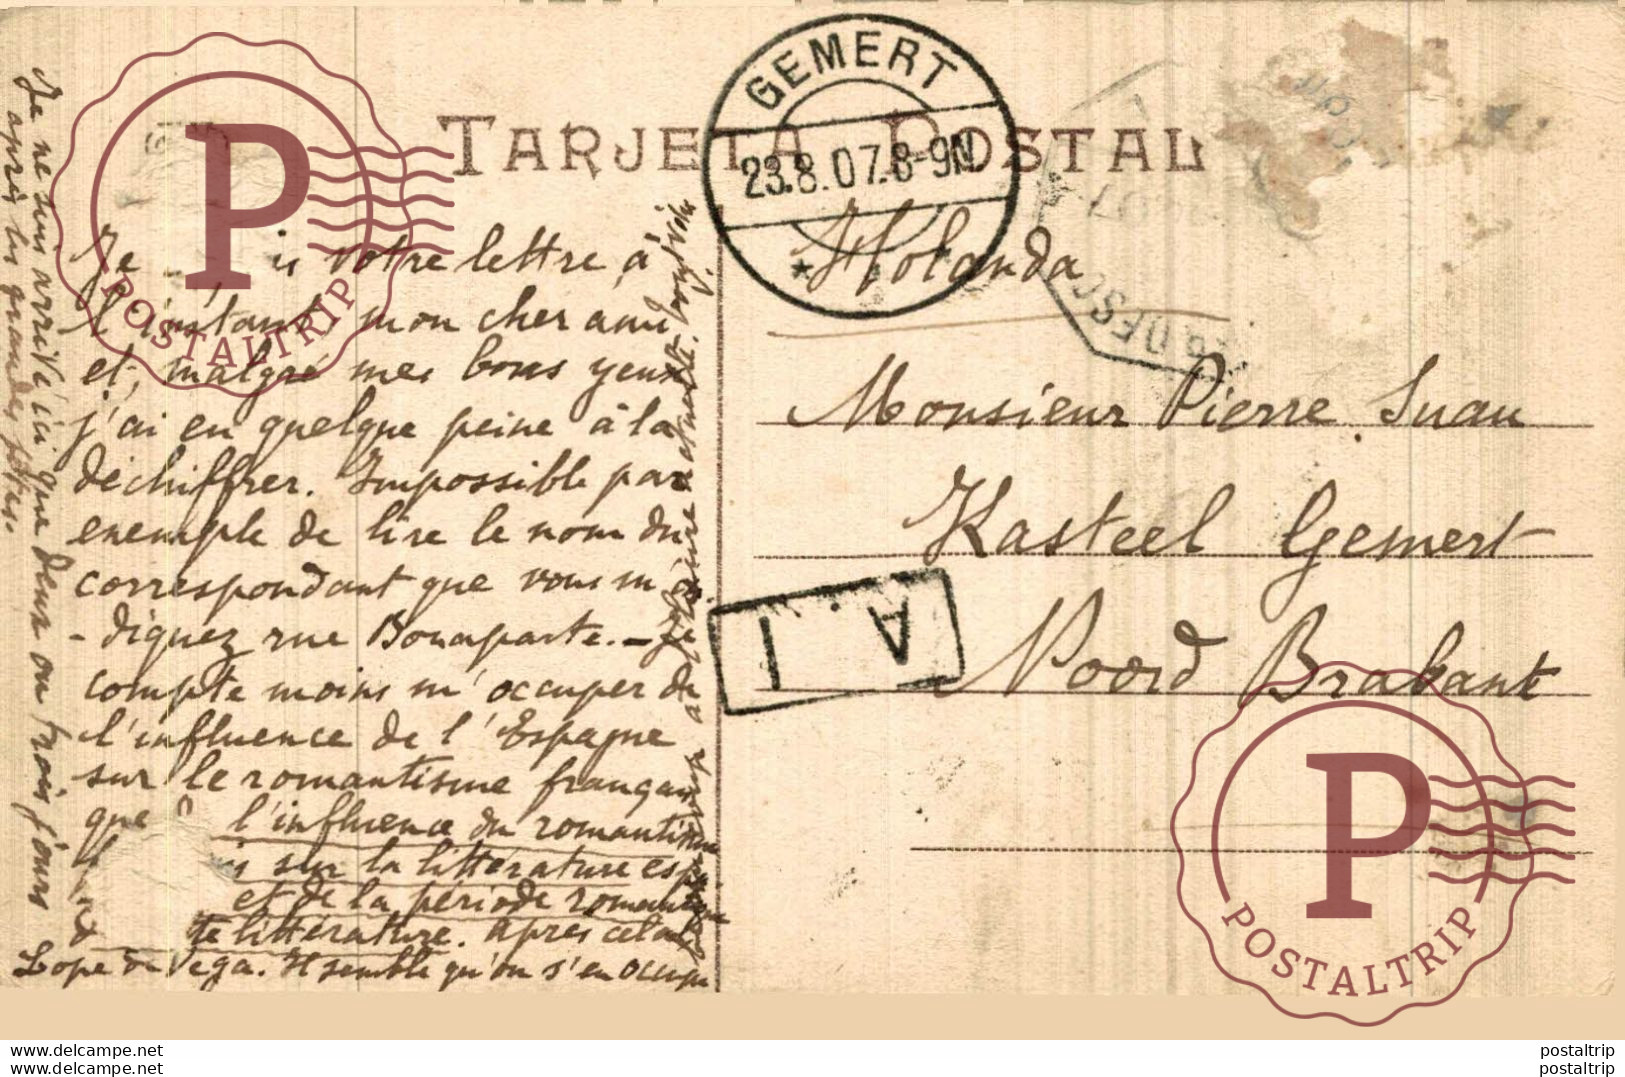 TARJETA POSTAL
GEMERT
23.8.07.8-9N
Holanda
Monsieur Pierre Suau
Kasteel Gemert
Noord Brabant
A.
Je is votre lettre à
l'instant, mon cher ami
et, malgré mes bons yeux
j'ai en quelque peine à la
déchiffrer. Impossible par
exemple de lire le nom du
correspondant que vous m'
-diquez rue Bonaparte. - Je
compte moins m'occuper de
l'influence de l'Espagne
sur le romantisme français
que l'influence du romantisme
sur la littérature esp
et de la période romantique
te littérature. Après cela
Lope de Vega. Il semble qu'on s'en occupe
Je ne suis arrivé ici que deux ou trois jours
après les grandes fêtes.
P
POSTALTRIP
P
POSTALTRIP
www.delcampe.net
www.delcampe.net
postaltrip
postaltrip